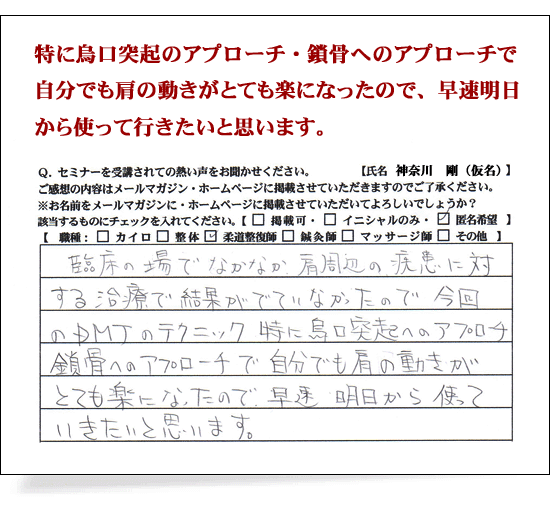 特に烏口突起のアプローチ・鎖骨へのアプローチで
自分でも肩の動きがとても楽になったので、早速明日
から使って行きたいと思います。
Q. セミナーを受講されての熱い声をお聞かせください。 【氏名 神奈川 剛（仮名）】
ご感想の内容はメールマガジン・ホームページに掲載させていただきますのでご了承ください。
※お名前をメールマガジンに・ホームページに掲載させていただいてよろしいでしょうか？
該当するものにチェックを入れてください。【 □ 掲載可・ □ イニシャルのみ・ ☑ 匿名希望 】
【 職種： □ カイロ □ 整体 ☑ 柔道整復師 □ 鍼灸師 □ マッサージ師 □ その他 】
臨床の場でなかなか、肩周辺の疾患に対
する治療で結果がでていなかったので今回
のDMJのテクニック 特に烏口突起へのアプローチ
鎖骨へのアプローチで自分でも肩の動きが
とても楽になったので、早速 明日から使って
いきたいと思います。